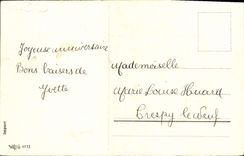 Joyeuse anniversaire
Bons baisers de
Yvette
Mademoiselle
Marie Louise Huard
Crespy le Neuf
4173